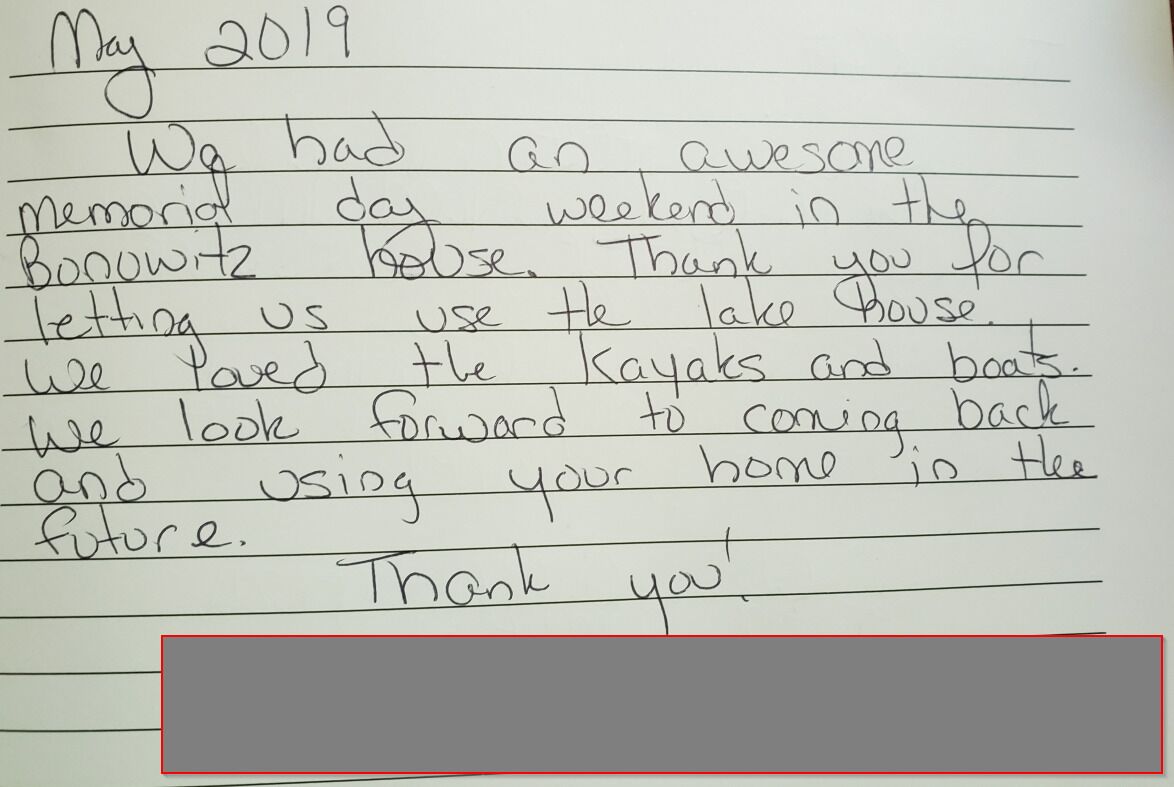 May 2019
We had an awesome
memorial day weekend in the
Bonowitz house. Thank you for
letting us use the lake house.
We loved the Kayaks and boats.
We look forward to coming back
and using your home in the
future.
Thank you!